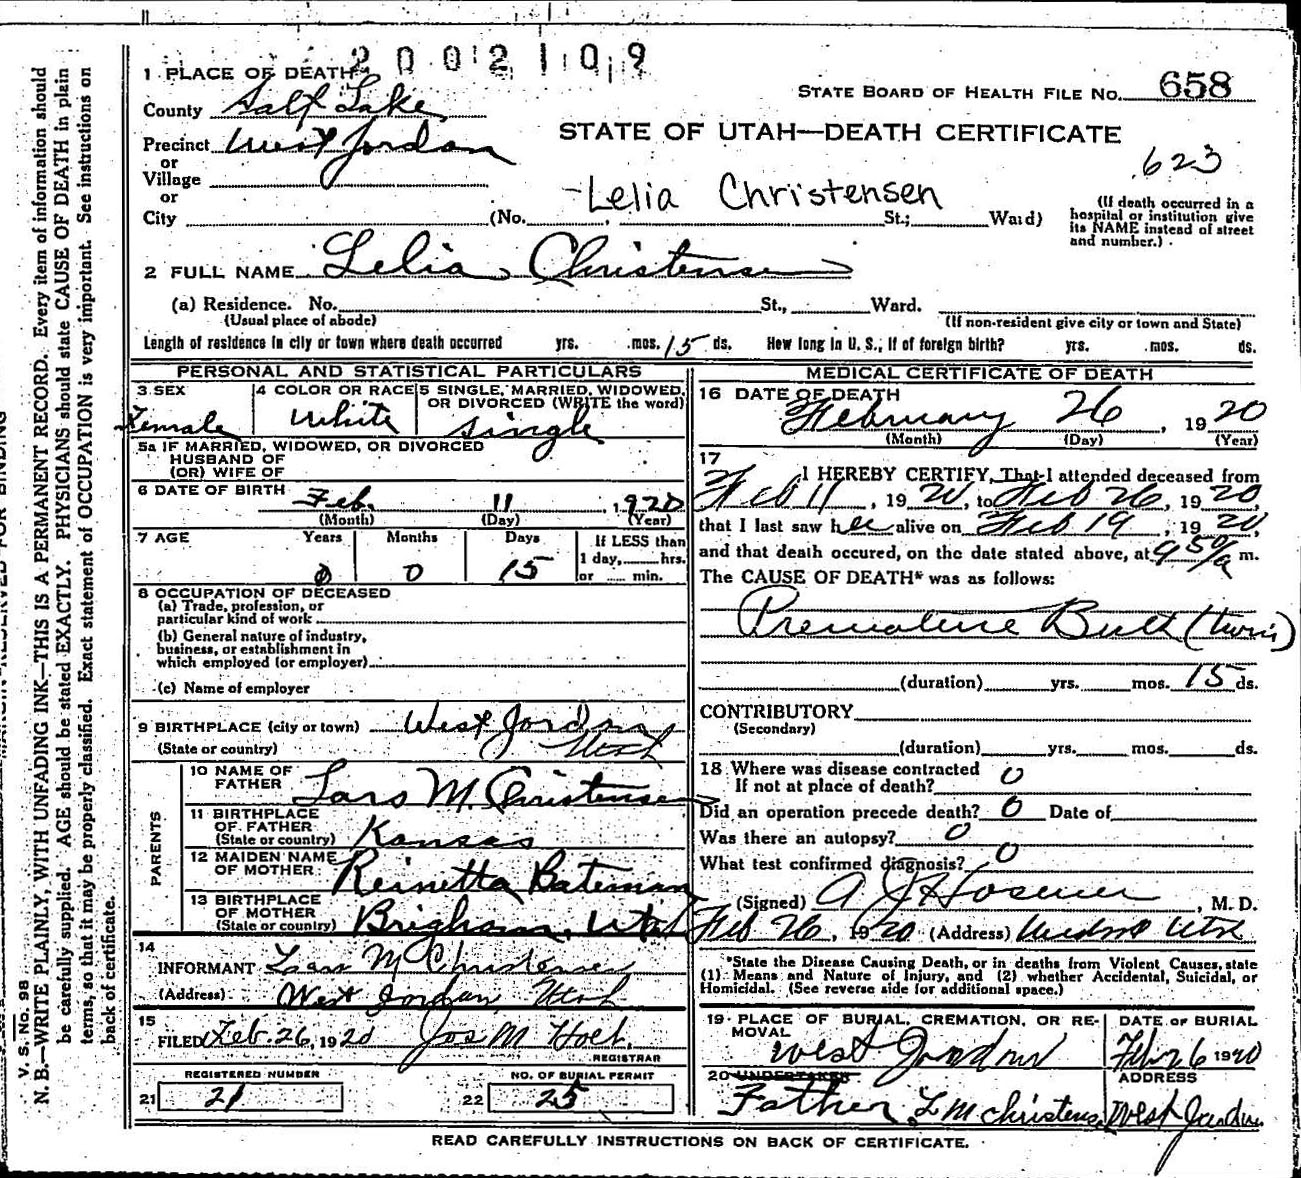 2002109
1 PLACE OF DEATH
STATE BOARD OF HEALTH FILE NO. 658
County Salt Lake
STATE OF UTAH—DEATH CERTIFICATE
Precinct West Jordan
or
Village
623
or
Lelia Christensen
City (No. St.; Ward)
(If death occurred in a hospital or institution give its NAME instead of street and number.)
2 FULL NAME Lelia Christensen
(a) Residence. No. St., Ward.
(Usual place of abode) (If non-resident give city or town and State)
Length of residence in city or town where death occurred yrs. mos. 15 ds. How long in U. S., if of foreign birth? yrs. mos. ds.
PERSONAL AND STATISTICAL PARTICULARS
3 SEX Female
4 COLOR OR RACE White
5 SINGLE, MARRIED, WIDOWED, OR DIVORCED (WRITE the word) Single
5a IF MARRIED, WIDOWED, OR DIVORCED
HUSBAND OF
(OR) WIFE OF
6 DATE OF BIRTH Feb. 11, 1920
(Month) (Day) (Year)
7 AGE Years Months Days If LESS than
0 0 15 1 day, hrs.
or min.
8 OCCUPATION OF DECEASED
(a) Trade, profession, or
particular kind of work
(b) General nature of industry,
business, or establishment in
which employed (or employer)
(c) Name of employer
9 BIRTHPLACE (city or town) West Jordan
(State or country) Utah
PARENTS
10 NAME OF FATHER Lars M. Christensen
11 BIRTHPLACE OF FATHER (State or country) Kansas
12 MAIDEN NAME OF MOTHER Reinetta Bateman
13 BIRTHPLACE OF MOTHER (State or country) Brigham, Utah
14 INFORMANT Lars M Christensen
(Address) West Jordan, Utah
15 FILED Feb. 26, 1920 Jos M Holt.
REGISTRAR
REGISTERED NUMBER NO. OF BURIAL PERMIT
21 21 22 25
MEDICAL CERTIFICATE OF DEATH
16 DATE OF DEATH
February 26, 1920
(Month) (Day) (Year)
17 I HEREBY CERTIFY, That I attended deceased from
Feb 11, 1920, to Feb 26, 1920,
that I last saw her alive on Feb 19, 1920,
and that death occured, on the date stated above, at 9 50/a m.
The CAUSE OF DEATH* was as follows:
Premature Birth (twin)
(duration) yrs. mos. 15 ds.
CONTRIBUTORY
(Secondary)
(duration) yrs. mos. ds.
18 Where was disease contracted
If not at place of death? 0
Did an operation precede death? 0 Date of
Was there an autopsy? 0
What test confirmed diagnosis? 0
(Signed) A J Hosmer, M. D.
Feb 26, 1920 (Address) Utah
*State the Disease Causing Death, or in deaths from Violent Causes, state
(1) Means and Nature of Injury, and (2) whether Accidental, Suicidal, or
Homicidal. (See reverse side for additional space.)
19 PLACE OF BURIAL, CREMATION, OR REMOVAL West Jordan
DATE OF BURIAL Feb 26 1920
20 UNDERTAKER Father L M Christensen
ADDRESS West Jordan
READ CAREFULLY INSTRUCTIONS ON BACK OF CERTIFICATE.
MARGIN RESERVED FOR BINDING
V. S. No. 98
N. B.—WRITE PLAINLY, WITH UNFADING INK—THIS IS A PERMANENT RECORD. Every item of information should
be carefully supplied. AGE should be stated EXACTLY. PHYSICIANS should state CAUSE OF DEATH in plain
terms, so that it may be properly classified. Exact statement of OCCUPATION is very important. See instructions on
back of certificate.